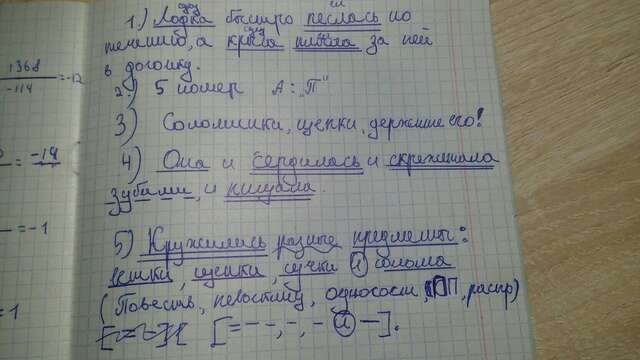 1368
-114
=-12
= -19
= -1
= 1
сущ
гл
1.) Лодка быстро неслась по
сущ
гл
течению, а крыса плыла за ней
в догонку.
2.) 5 номер А: „П"
3) Соломинки, щепки, держите его!
4) Она и сердилась и скрежетала
зубами, и кищала.
5) Кружились разные предметы:
ветки, щепки, сучки и солома
(Повеств, невосклиц, односост, П, распр)
[= - -, -, - и -].